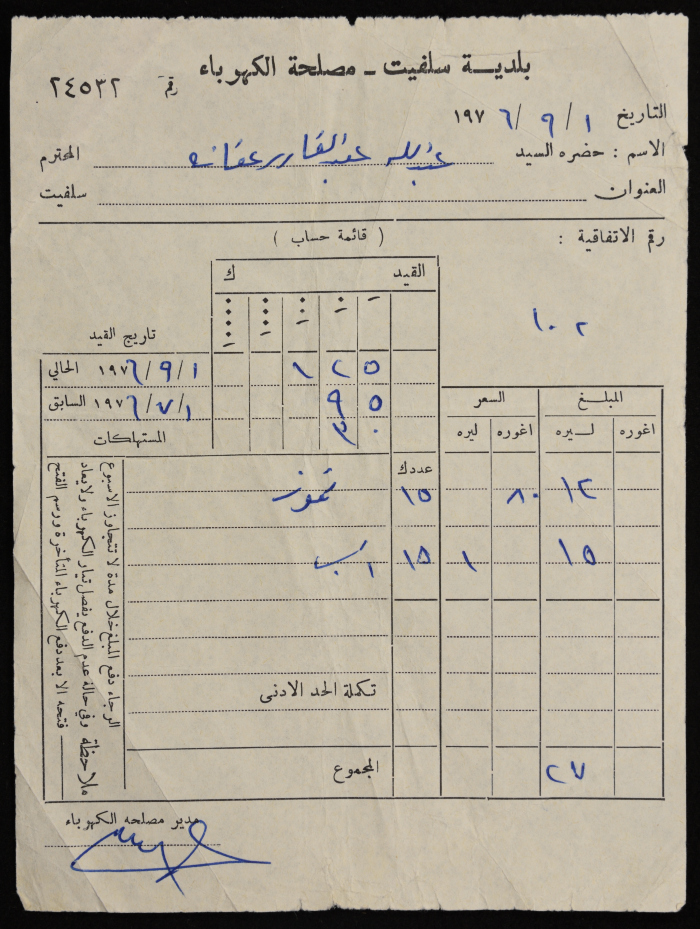 بلديـــة سلفيت ــ مصلحة الكهرباء
رقم ٢٤٥٣٢
التاريخ ١ / ٩ / ١٩٧٦
الاسم : حضره السيد عبدالله عبدالقادر عفانه المحترم
العنوان سلفيت
رقم الاتفاقية :
( قائمة حساب )
١٠٢
القيد ك
تاريخ القيد
١ ١٠ ١٠٠ ١٠٠٠ ١٠٠٠٠
الحالي ١ / ٩ / ١٩٧٦ ١٢٥
السابق ١ / ٧ / ١٩٧٦ ٩٥
المستهلكات ٣٠
المبلغ السعر
اغوره ليره اغوره ليره
عددك
تموز ١٥ ٨٠ ١٢
آب ١٥ ١ ١٥
تكملة الحد الادنى
المجموع ٢٧
الرجاء دفع المبلغ خلال مدة لا تتجاوز الاسبوع
ملاحظة وفي حالة عدم الدفع يفصل تيار الكهرباء ولا يعاد
فتحه الا بعد دفع الكهرباء المتأخرة ورسم الفتح
مدير مصلحه الكهرباء